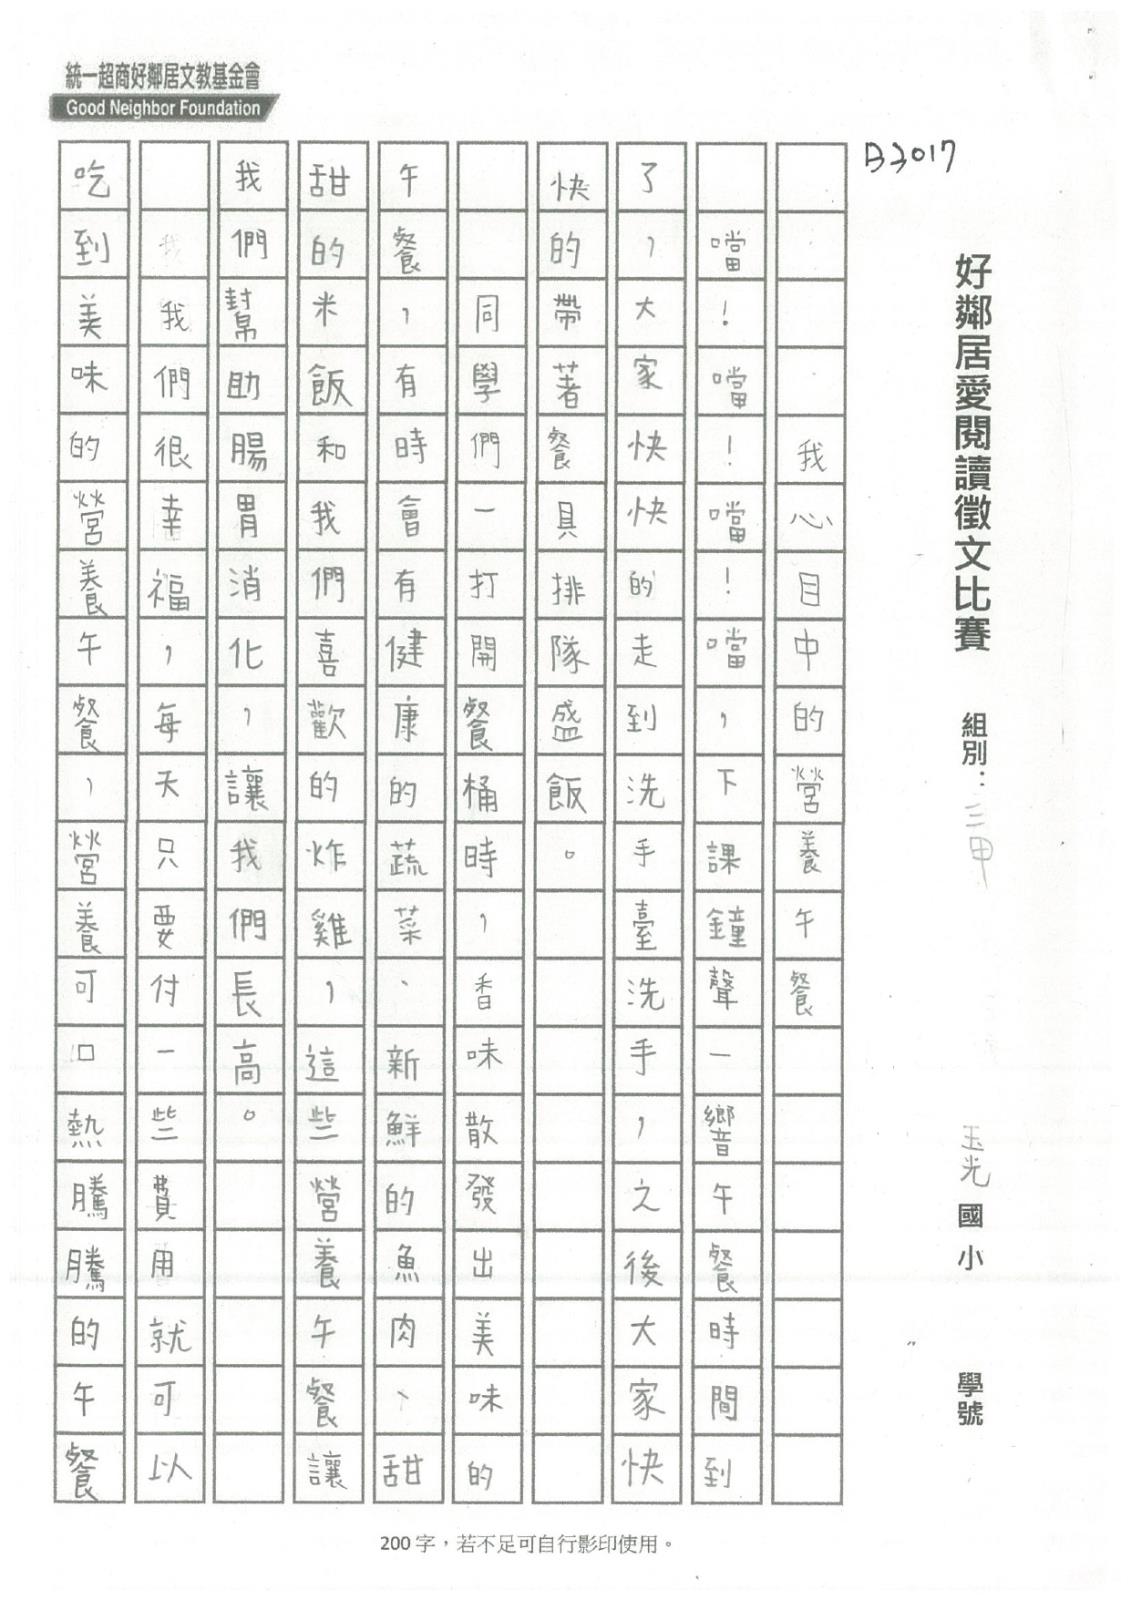 統一超商好鄰居文教基金會
Good Neighbor Foundation
B3017
好鄰居愛閱讀徵文比賽 組別：三甲 玉光國小 學號
我心目中的營養午餐
噹！噹！噹！噹，下課鐘聲一響午餐時間到
了，大家快快的走到洗手臺洗手，之後大家快
快的帶著餐具排隊盛飯。
同學們一打開餐桶時，香味散發出美味的
午餐，有時會有健康的蔬菜、新鮮的魚肉、甜
甜的米飯和我們喜歡的炸雞，這些營養午餐讓
我們幫助腸胃消化，讓我們長高。
我們很幸福，每天只要付一些費用就可以
吃到美味的營養午餐，營養可口熱騰騰的午餐
200字，若不足可自行影印使用。